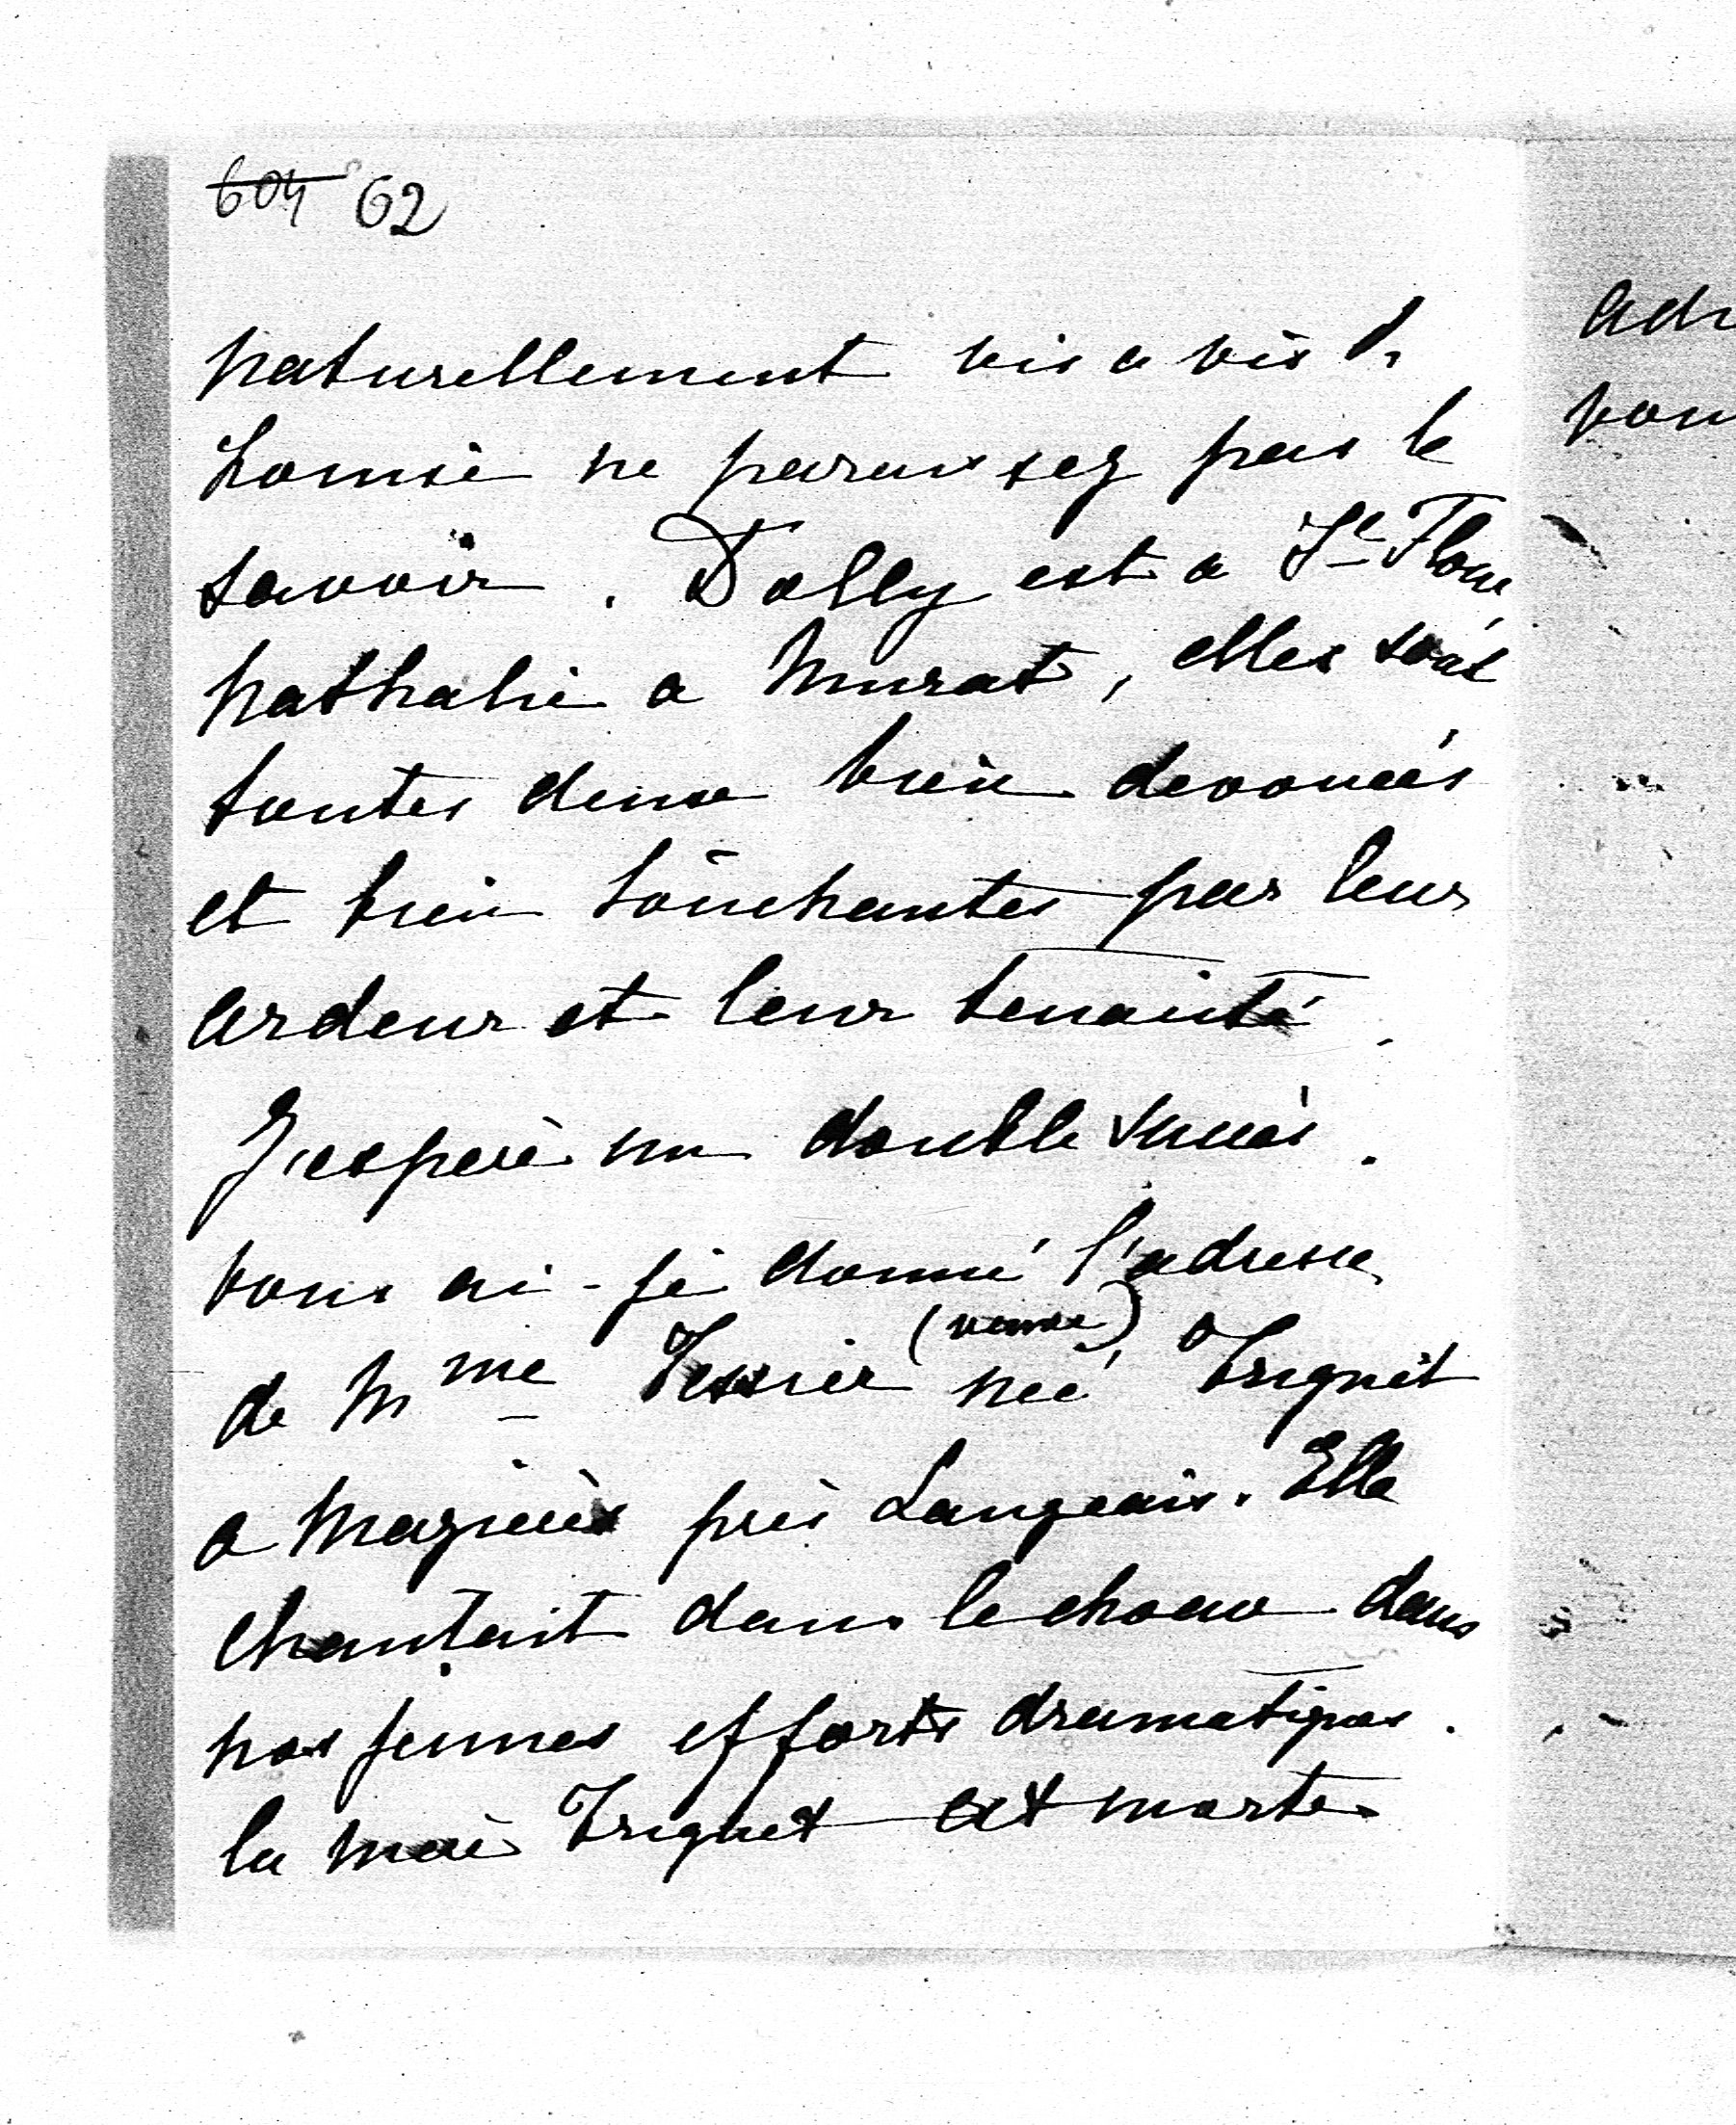 604 62
naturellement vis a vis de
Louise ne paraissez pas le
savoir. Dolly est a St Flour
Nathalie a Murat, elles sont
toutes deux bien devouées
et bien touchantes par leur
ardeur et leur tenacité.
J'espère un double succès.
Vous ai-je donné l'adresse
de Mme Tessier (veuve) née Triquet
a Mazières près Langeais. Elle
chantait dans le choeur dans
nos jeunes efforts dramatiques.
la mère Triquet est morte